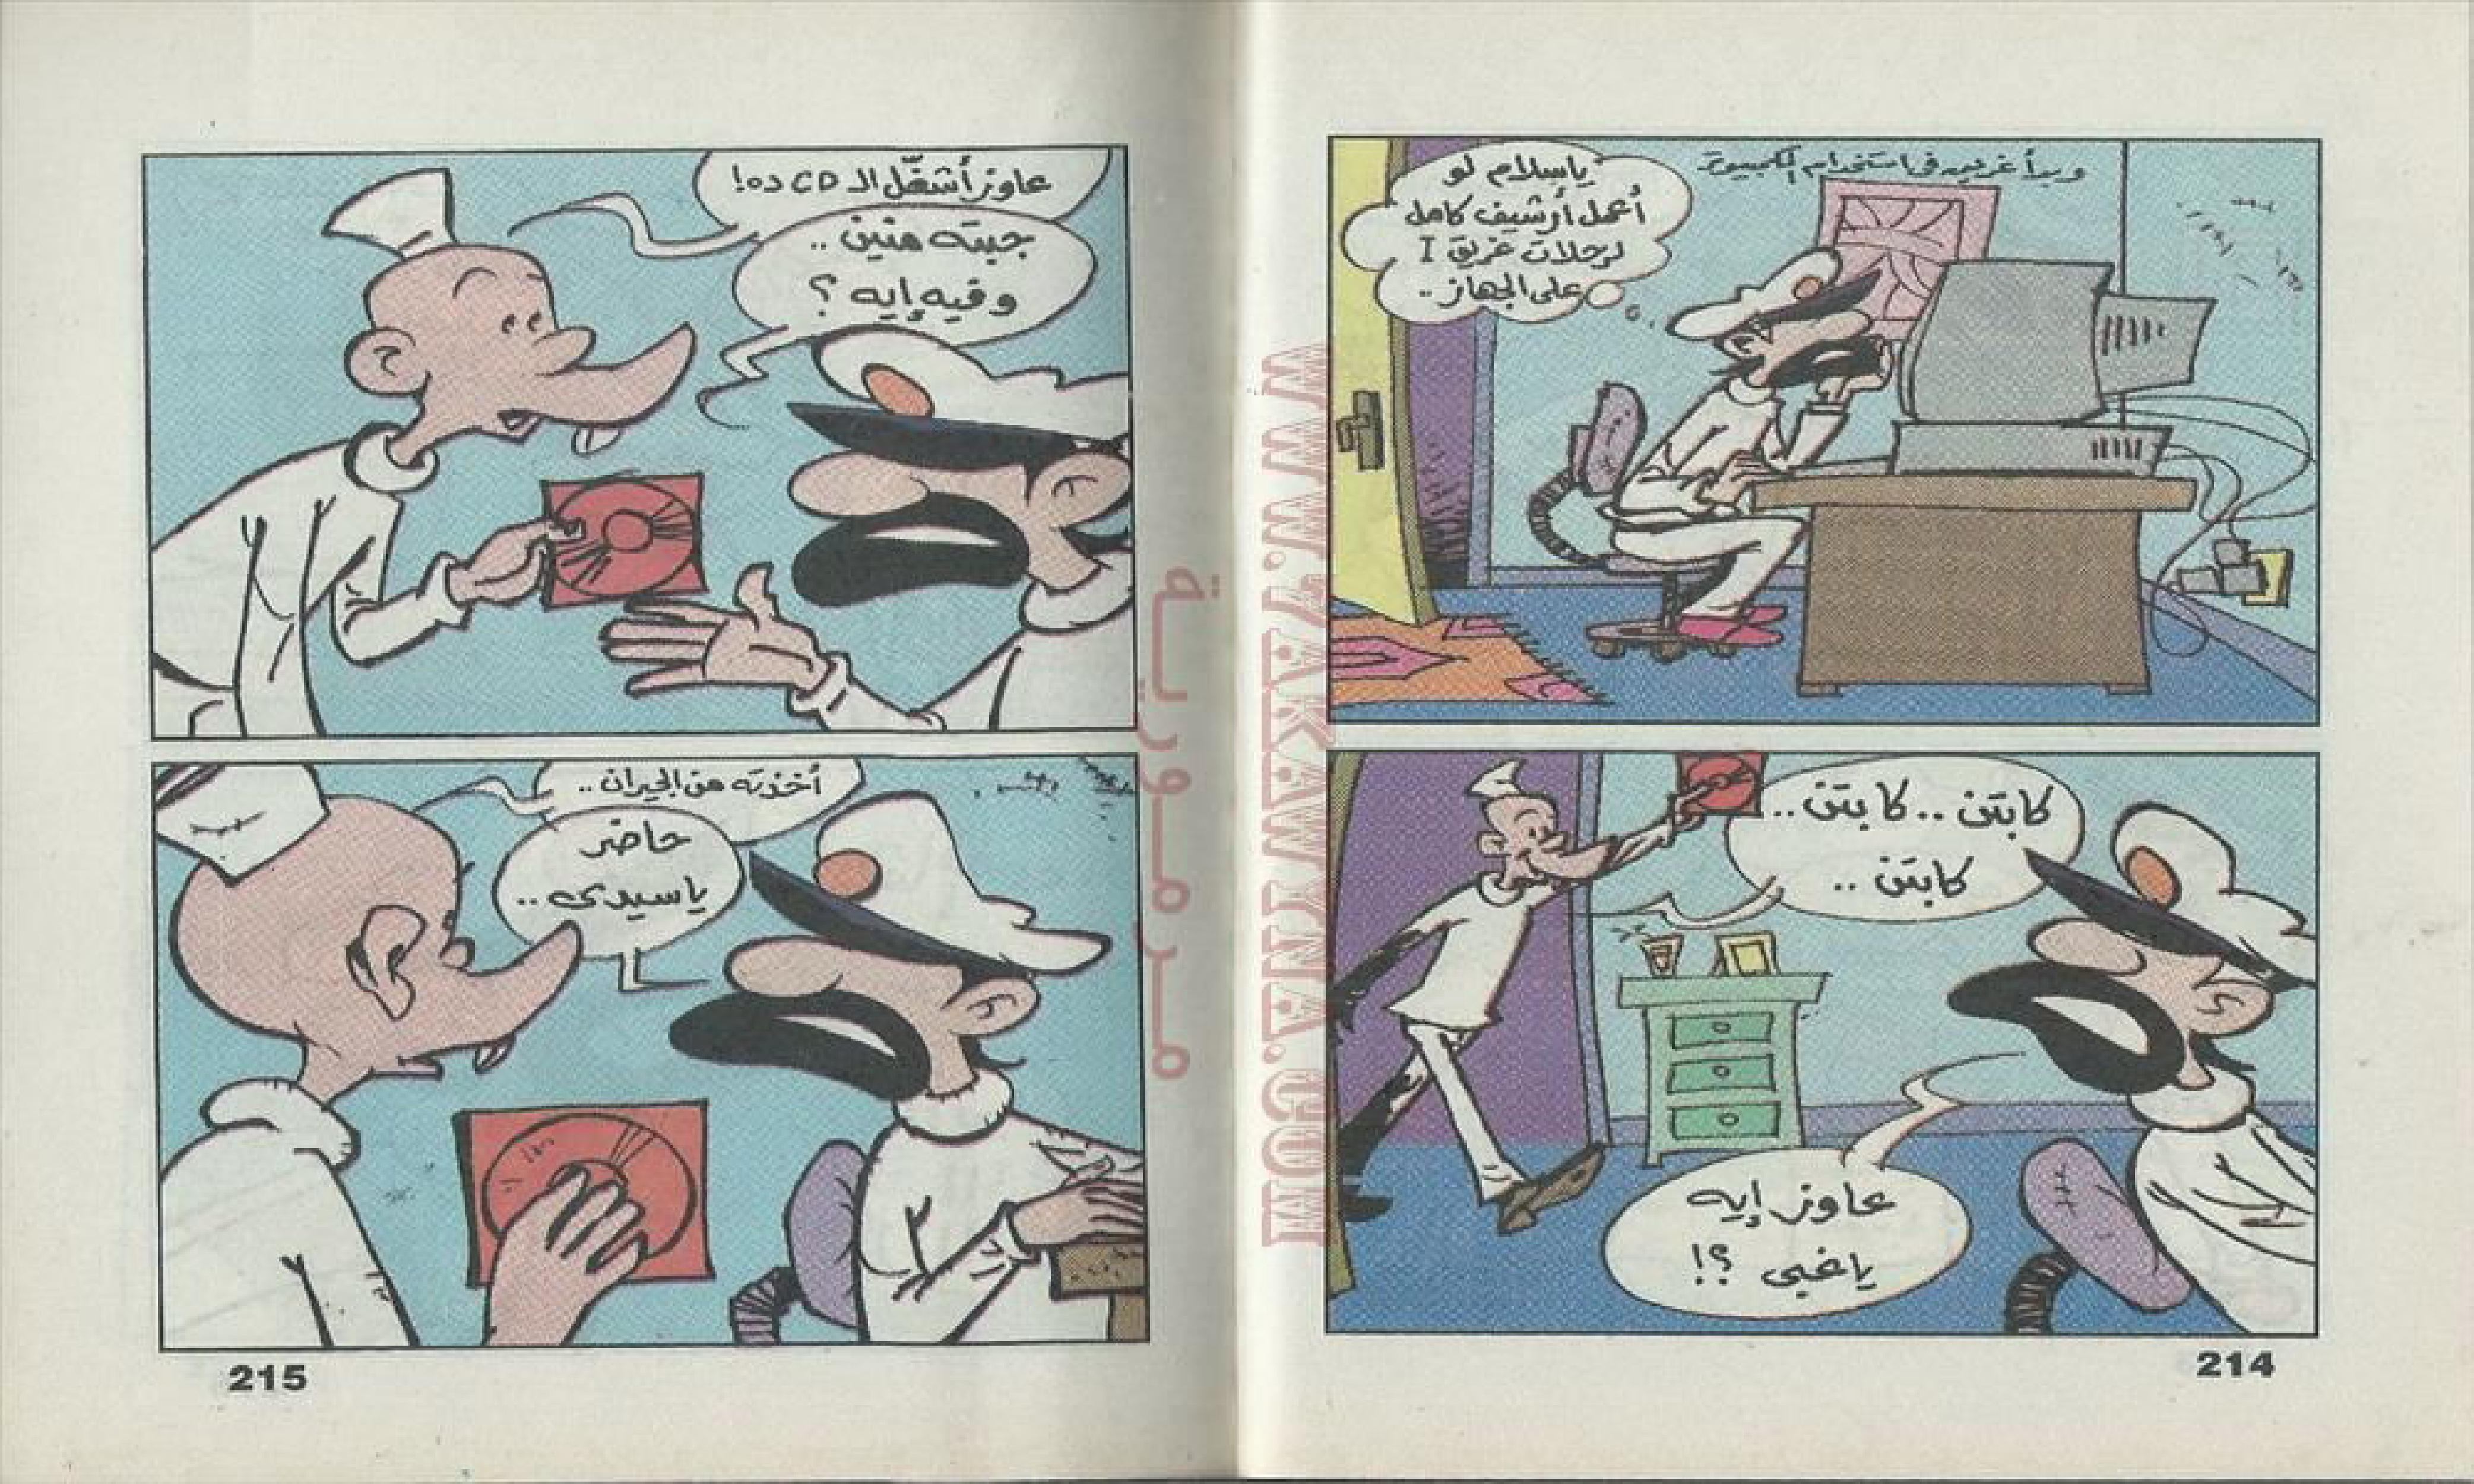 وبدأ غريب في استخدام الكمبيوتر
ياسلام لو
أعمل أرشيف كامل
لرحلات غريق I
على الجهاز..
كابتن.. كابتن..
كابتن..
عاوز إيه
ياغبى ؟!
214
عاوز أشغّل الـ CD ده!
جبته منين..
وفيه إيه ؟
أخذته من الجيران..
حاضر
ياسيدى..
215
WWW.7AKAWYNA.COM
مرمورية